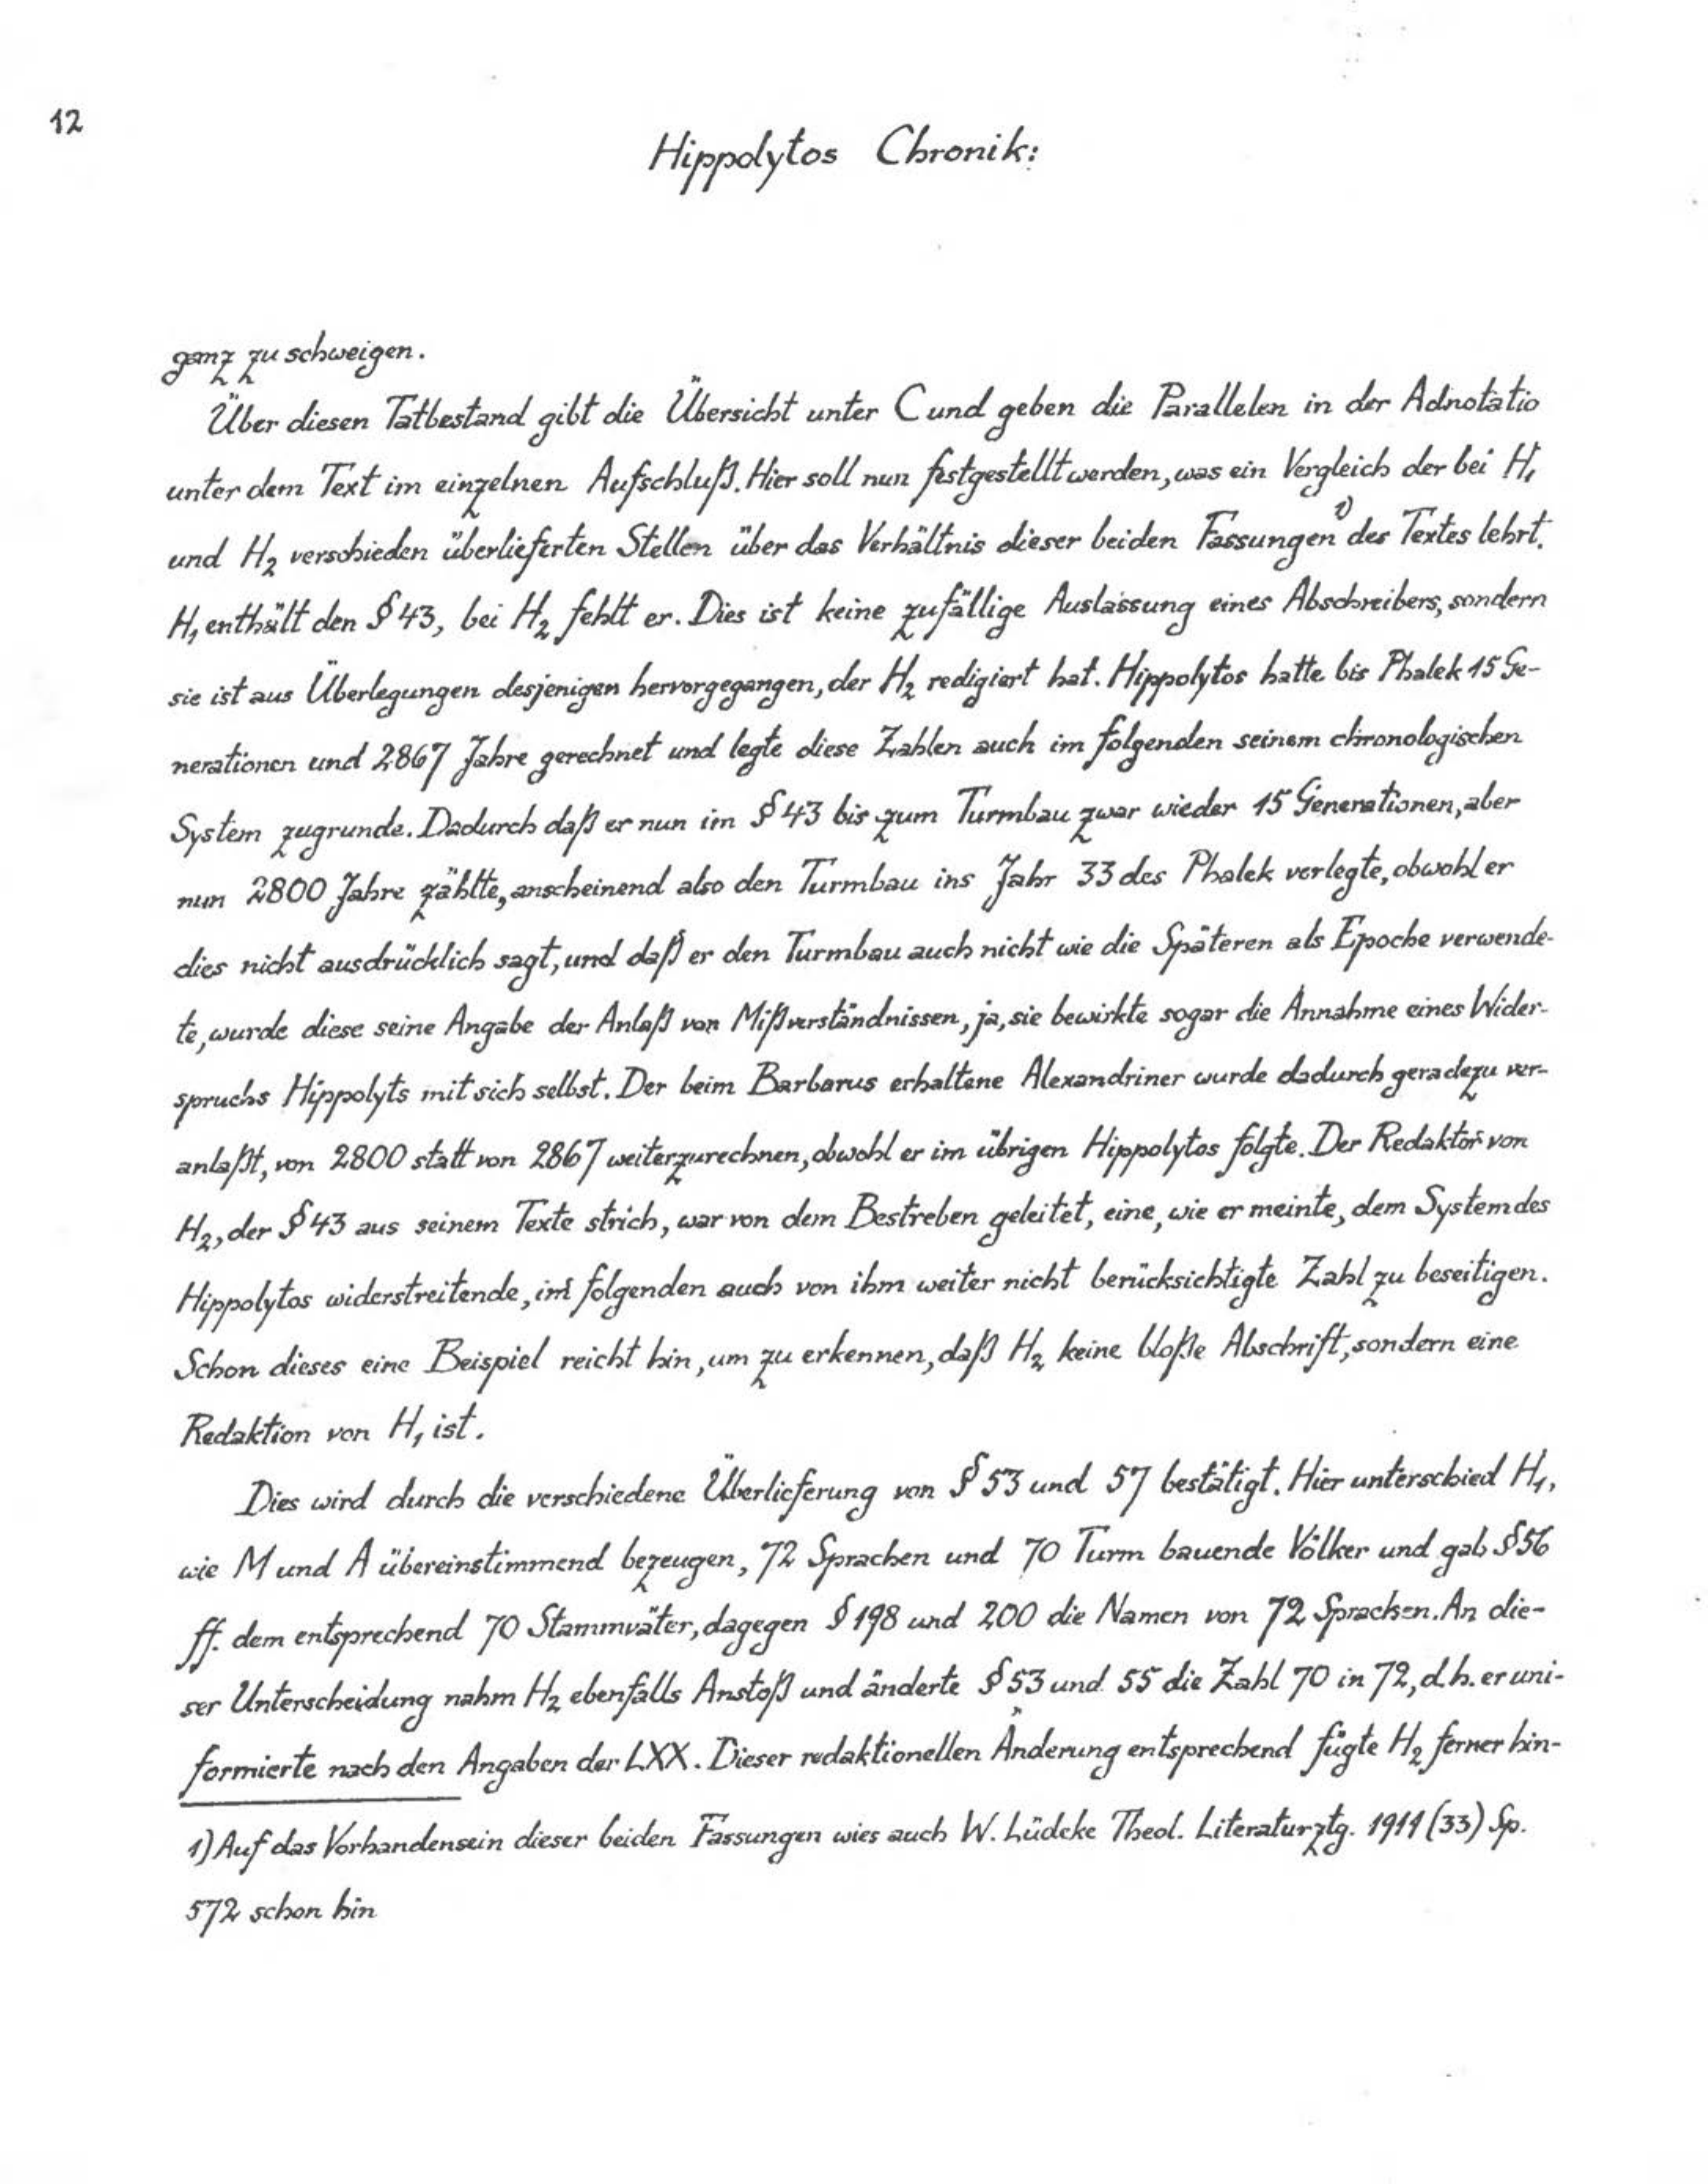 12
Hippolytos Chronik:
ganz zu schweigen.
Über diesen Tatbestand gibt die Übersicht unter C und geben die Parallelen in der Adnotatio
unter dem Text im einzelnen Aufschluß. Hier soll nun festgestellt werden, was ein Vergleich der bei H₁
und H₂ verschieden überlieferten Stellen über das Verhältnis dieser beiden Fassungen ¹⁾ des Textes lehrt.
H₁ enthält den § 43, bei H₂ fehlt er. Dies ist keine zufällige Auslassung eines Abschreibers, sondern
sie ist aus Überlegungen desjenigen hervorgegangen, der H₂ redigiert hat. Hippolytos hatte bis Phalek 15 Ge-
nerationen und 2867 Jahre gerechnet und legte diese Zahlen auch im folgenden seinem chronologischen
System zugrunde. Dadurch daß er nun im § 43 bis zum Turmbau zwar wieder 15 Generationen, aber
nun 2800 Jahre zählte, anscheinend also den Turmbau ins Jahr 33 des Phalek verlegte, obwohl er
dies nicht ausdrücklich sagt, und daß er den Turmbau auch nicht wie die Späteren als Epoche verwende-
te, wurde diese seine Angabe der Anlaß von Mißverständnissen, ja, sie bewirkte sogar die Annahme eines Wider-
spruchs Hippolyts mit sich selbst. Der beim Barbarus erhaltene Alexandriner wurde dadurch geradezu ver-
anlaßt, von 2800 statt von 2867 weiterzurechnen, obwohl er im übrigen Hippolytos folgte. Der Redaktor von
H₂, der § 43 aus seinem Texte strich, war von dem Bestreben geleitet, eine, wie er meinte, dem System des
Hippolytos widerstreitende, im folgenden auch von ihm weiter nicht berücksichtigte Zahl zu beseitigen.
Schon dieses eine Beispiel reicht hin, um zu erkennen, daß H₂ keine bloße Abschrift, sondern eine
Redaktion von H₁ ist.
Dies wird durch die verschiedene Überlieferung von § 53 und 57 bestätigt. Hier unterschied H₁,
wie M und A übereinstimmend bezeugen, 72 Sprachen und 70 Turm bauende Völker und gab § 56
ff. dem entsprechend 70 Stammväter, dagegen § 198 und 200 die Namen von 72 Sprachen. An die-
ser Unterscheidung nahm H₂ ebenfalls Anstoß und änderte § 53 und 55 die Zahl 70 in 72, d.h. er uni-
formierte nach den Angaben der LXX. Dieser redaktionellen Änderung entsprechend fügte H₂ ferner hin-
1) Auf das Vorhandensein dieser beiden Fassungen wies auch W. Lüdcke Theol. Literaturztg. 1911 (33) Sp.
572 schon hin